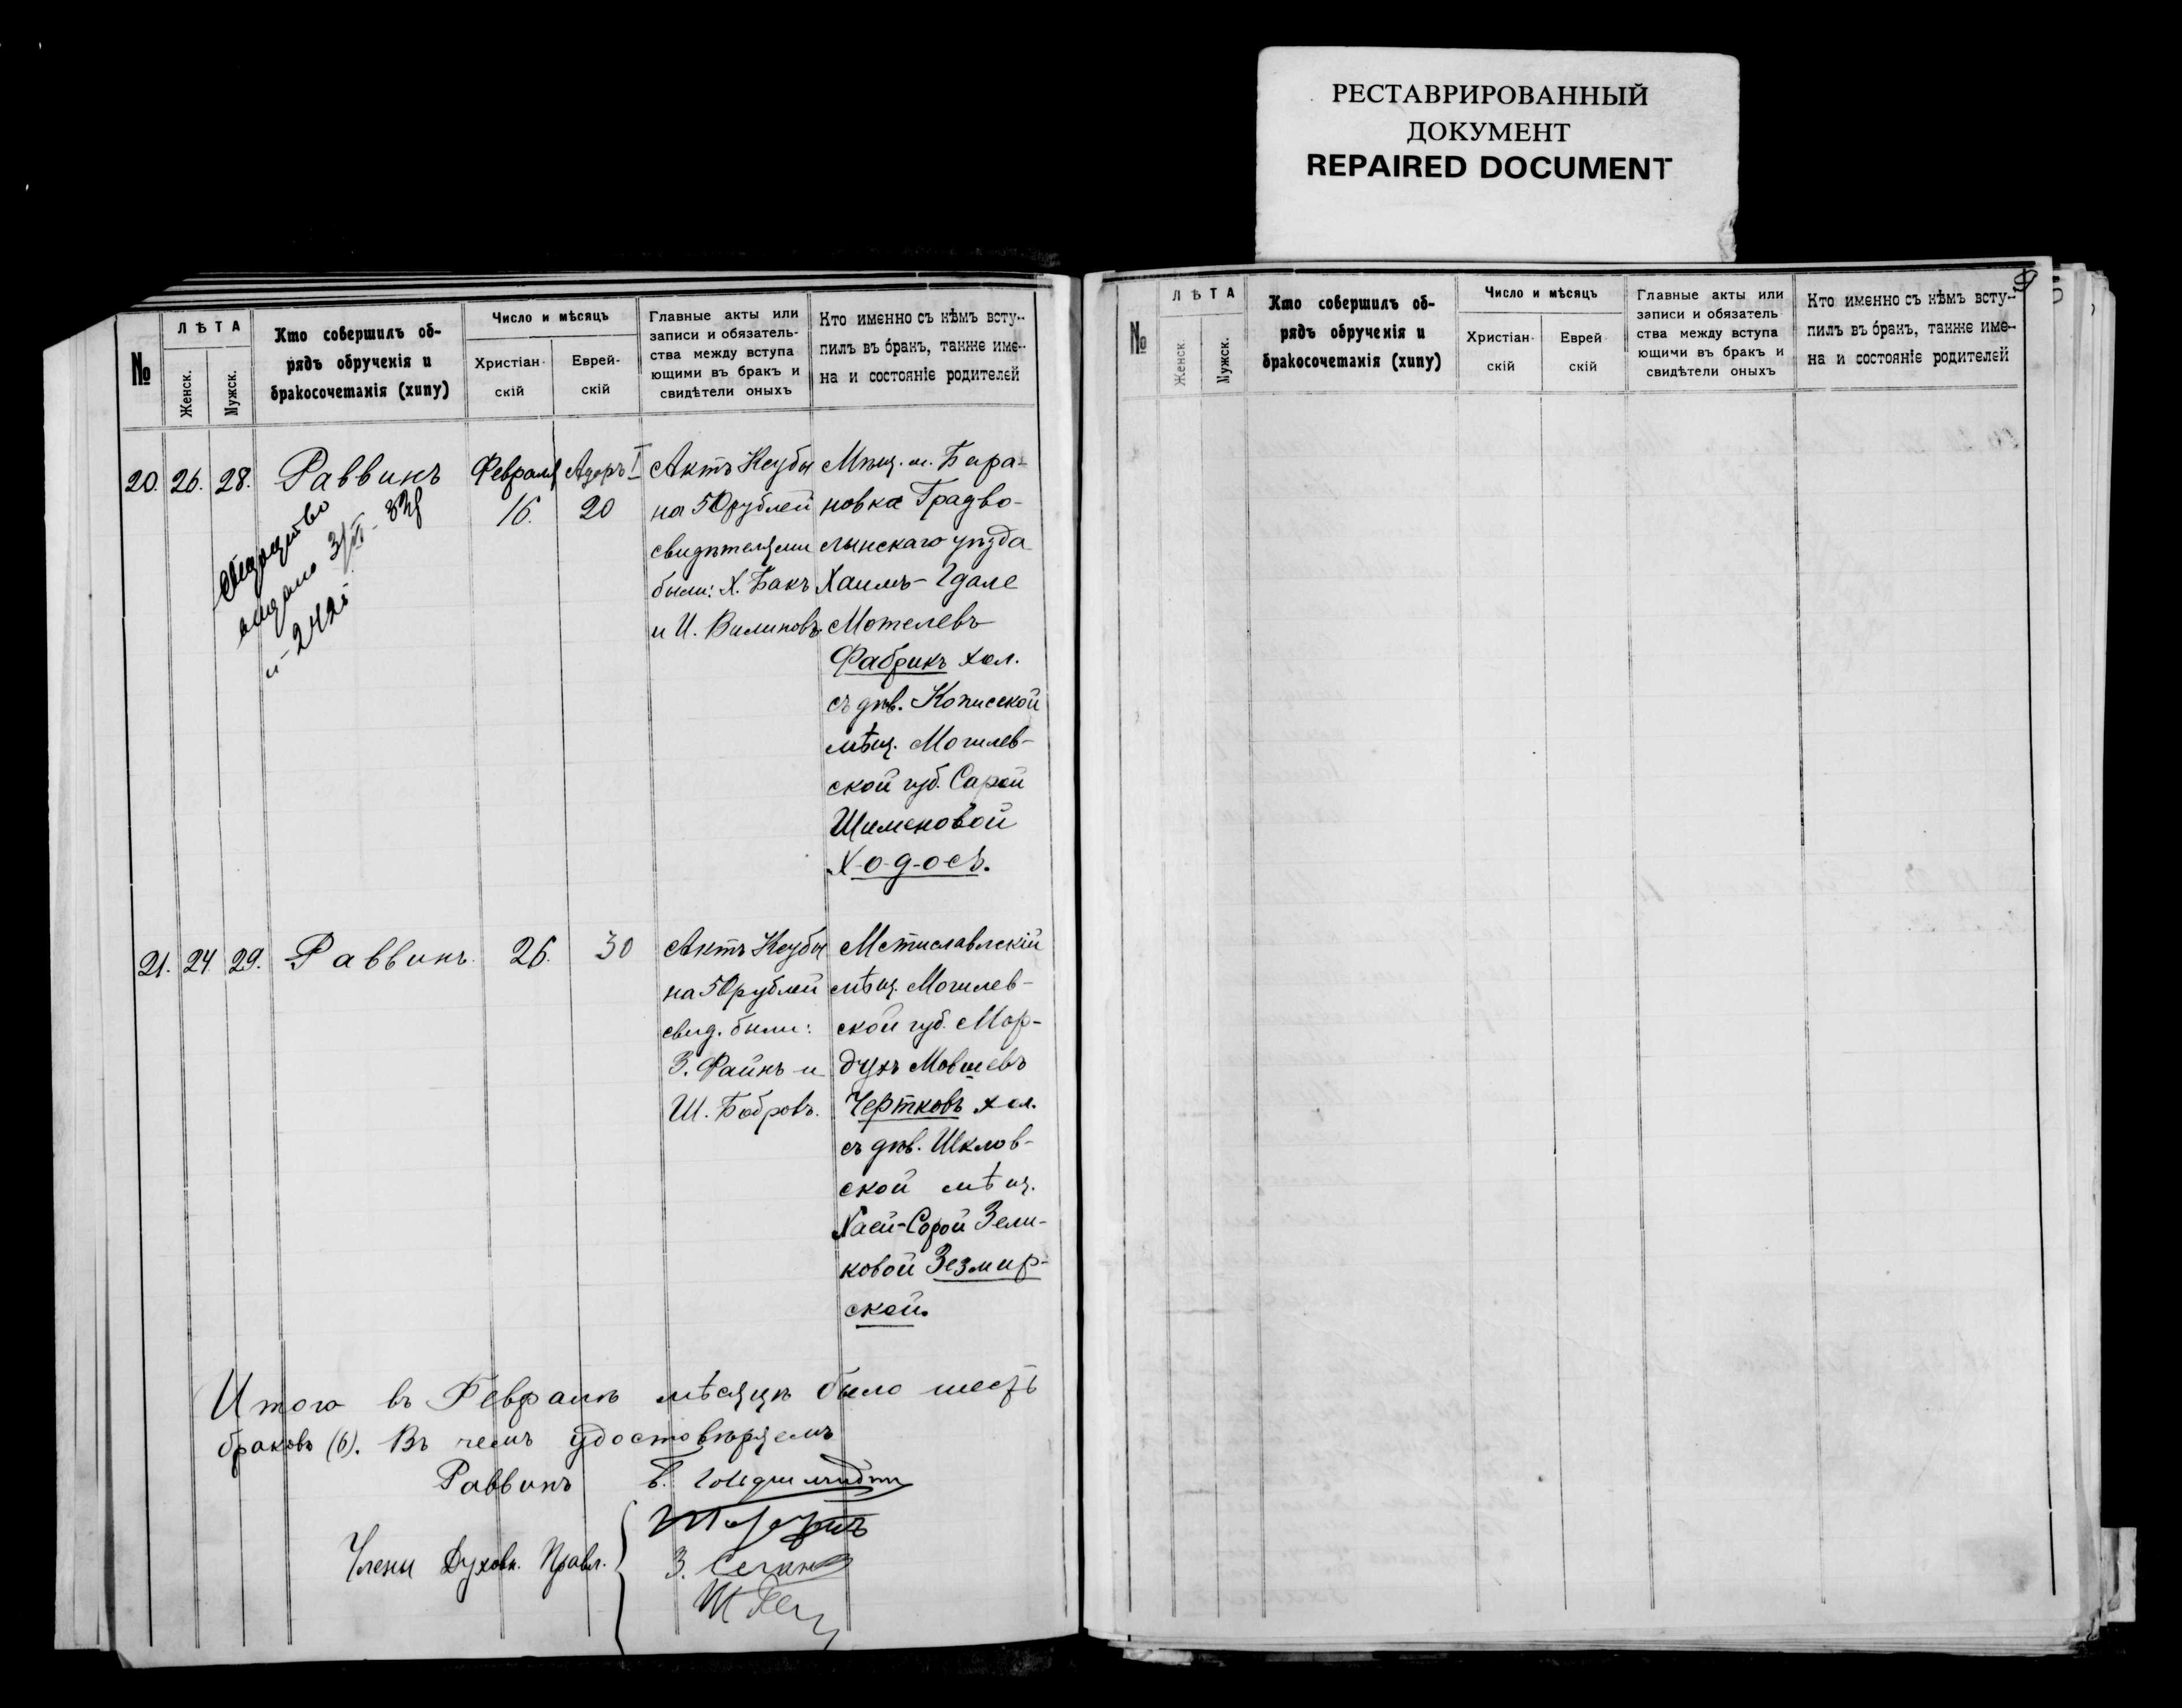 РЕСТАВРИРОВАННЫЙ
ДОКУМЕНТ
REPAIRED DOCUMENT
№
ЛѢТА
Женск.
Мужск.
Кто совершилъ об-
рядъ обрученія и
бракосочетанія (хипу)
Число и мѣсяцъ
Христіан-
скій
Еврей-
скій
Главные акты или
записи и обязатель-
ства между вступа
ющими въ бракъ и
свидѣтели оныхъ
Кто именно съ кѣмъ всту-
пилъ въ бракъ, также име-
на и состояніе родителей
20. 26. 28.
Раввинъ
выдано
Февраля
16.
Адоръ I
20
Актъ Кеубы
на 50 рублей
свидѣтелями
были: Х. Бакъ
и И.
Мѣщ. м. Бара-
новка Градво-
лынскаго уѣзда
Хаимъ-Гдале
Мотелевъ
Фабрикъ хол.
съ дѣв. Кописской
мѣщ. Могилев-
ской губ. Сарой
Шименовой
Х-о-д-о-съ.
21. 24. 29.
Раввинъ.
26.
30
Актъ Кеубы
на 50 рублей
свид. были:
З. Файнъ и
Ш. Бобровъ.
Мстиславлскій
мѣщ. Могилев-
ской губ. Мор-
духъ Мовшевъ
Чертковъ хол.
съ дѣв. Шклов-
ской мѣщ.
Хаей-Сорой Зели-
ковой Зезмир-
ской.
Итого въ Февралѣ мѣсяцѣ было шесть
браковъ (6). Въ чемъ удостовѣряемъ
Раввинъ
Члены Духовн. Правл.
З.
№
ЛѢТА
Женск.
Мужск.
Кто совершилъ об-
рядъ обрученія и
бракосочетанія (хипу)
Число и мѣсяцъ
Христіан-
скій
Еврей-
скій
Главные акты или
записи и обязатель
ства между вступа
ющими въ бракъ и
свидѣтели оныхъ
Кто именно съ кѣмъ всту-
пилъ въ бракъ, также име-
на и состояніе родителей